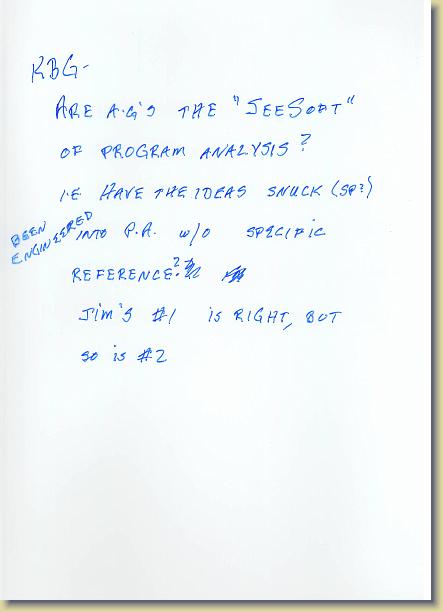 KBG-
ARE A.G'S THE "SEESOFT"
OF PROGRAM ANALYSIS?
I.E HAVE THE IDEAS SNUCK (SP?)
BEEN
ENGINEERED
INTO P.A. W/O SPECIFIC
REFERENCE?
JIM'S #1 IS RIGHT, BUT
SO IS #2